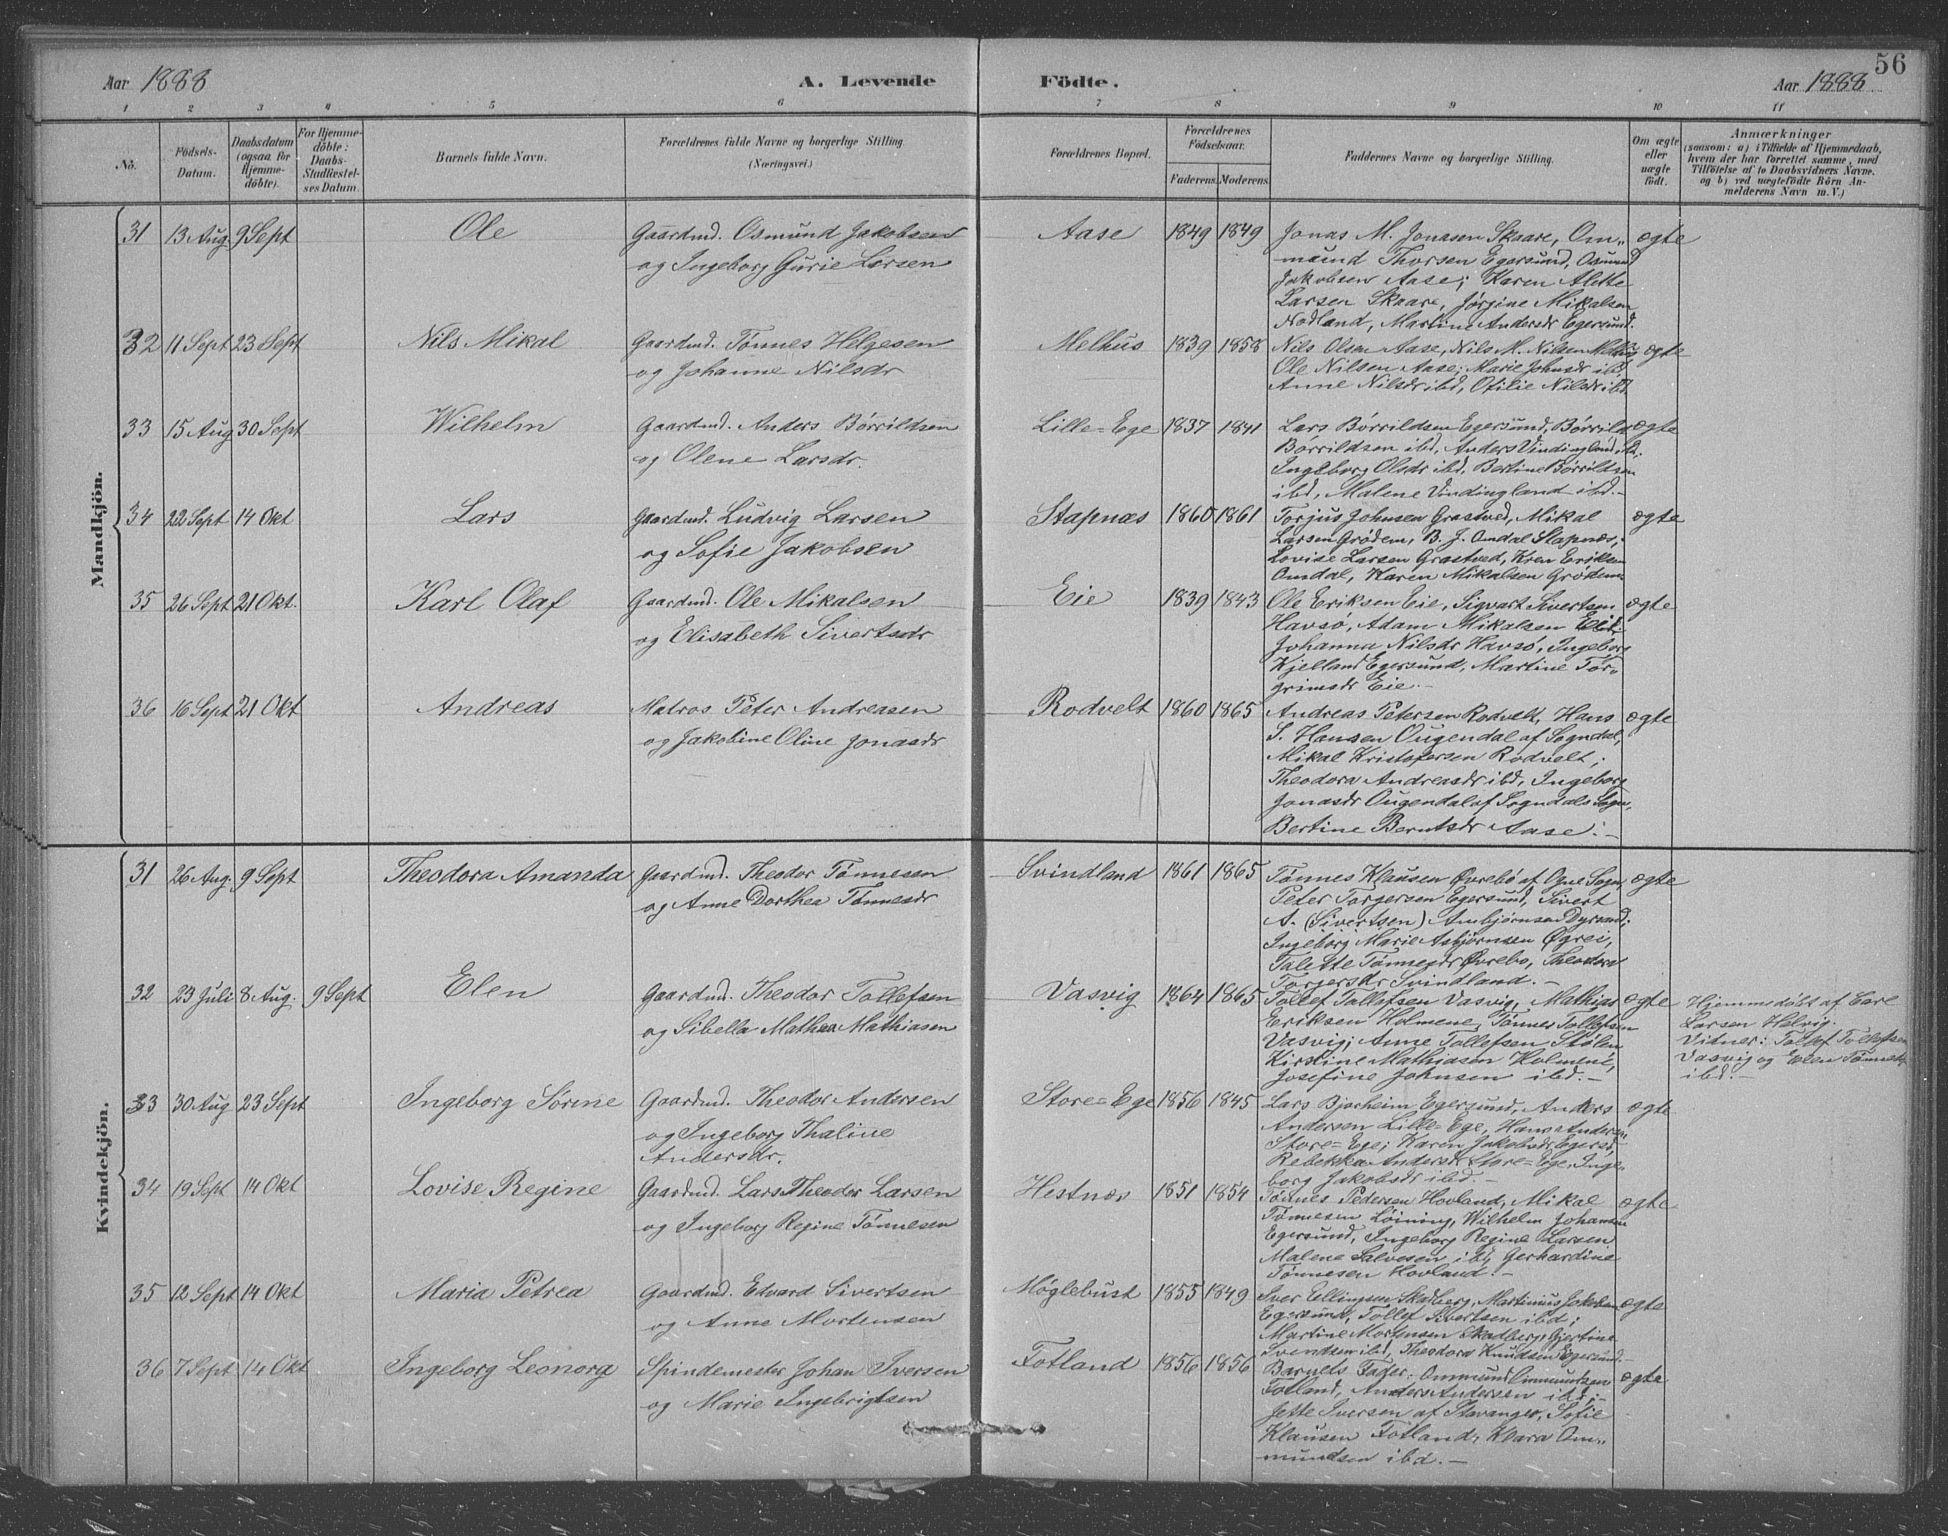 56
Aar 1888 A. Levende Födte. Aar 1888
1 2 3 4 5 6 7 8 9 10 11
No. Födsels-Datum. Daabsdatum (ogsaa for Hjemme-döbte). For Hjemme-döbte: Daabs-Stadfæstel-ses Datum. Barnets fulde Navn. Forældrenes fulde Navne og borgerlige Stilling. (Næringsvei.) Forældrenes Bopæl. Forældrenes Födselsaar. Faderens. Moderens. Faddernes Navne og borgerlige Stilling. Om ægte eller uægte födt. Anmærkninger
(saasom: a) i Tilfælde af Hjemmedaab,
hvem der har forrettet samme, med
Tilföielse af to Daabsvidners Navne.
og b) ved uægtefödte Börn An-
melderens Navn m. V.)
Mandkjön.
31 13 Aug. 9 Sept Ole Gaardmd. Osmund Jakobsen Aase 1849 1849 Jonas M. Jonassen Skaare, Om- ægte
og Ingeborg Gurie Larsen mund Thorsen Egersund, Osmund
Jakobsen Aase; Karen Alette
Larsen Skaare, Jørgine Mikalsen
Nodland, Martine Andersdr Egersund.
32 11 Sept 23 Sept Nils Mikal Gaardmd. Tönnes Helgesen Melhus 1839 1858 Nils Olsen Aase, Nils M. Nilsen Melhus, ægte
og Johanne Nilsdr Ole Nilsen Aase; Marie Johnsdr ibd,
Anne Nilsdr ibd, Otilie Nilsdr ibd.
33 15 Aug 30 Sept Wilhelm Gaardmd. Anders Börrildsen Lille-Ege 1837 1841 Lars Börrildsen Egersund, Börrild ægte
og Olene Larsdr. Börrildsen ibd, Anders Vindingland ibd.
Ingeborg Olsdr ibd, Bertine Börrildsen
ibd, Malene Vindingland ibd.-
34 22 Sept 14 Okt Lars Gaardmd. Ludvig Larsen Stapnæs 1860 1861 Torjus Johnsen Grastved, Mikal ægte
og Sofie Jakobsen Larsen Grödem, B. J. Omdal Stapnæs;
Lovise Larsen Grastved, Kren Eriksen
Omdal, Karen Mikalsen Grödem
35 26 Sept 21 Okt. Karl Olaf Gaardmd. Ole Mikalsen Eie 1839 1843 Ole Eriksen Eie, Sigvart Sivertsen ægte
og Elisabeth Sivertsdr Havsö, Adam Mikalsen Eie;
Johanna Nilsdr Havsö, Ingeborg
Kjelland Egersund, Martine Tor-
grimsdr Eie.-
36 16 Sept 21 Okt Andreas Matros Peter Andreasen Rodvelt 1860 1865 Andreas Petersen Rodvelt, Hans ægte
og Jakobine Oline Jonasdr S. Hansen Ougendal af Sogndal,
Mikal Kristofersen Rodvelt;
Theodora Andreasdr ibd, Ingeborg
Jonasdr Ougendal af Sogndals Sogn,
Bertine Berntsdr Aase.-
Kvindekjön.
31 26 Aug. 9 Sept Theodora Amanda Gaardmd. Theodor Tönnesen Svindland 1861 1865 Tönnes Klausen Øvrebö af Ogne Sogn, ægte
og Anne Dorthea Tönnesdr Peter Torgersen Egersund, Sivert
A. (Sivertsen) Ambjörnsen Dyrsand;
Ingeborg Marie Asbjörnsen Øgrei,
Talette Tönnesdr Øvrebö, Theodora
Torgersdr Svindland.-
32 23 Juli 8 Aug. 9 Sept Elen Gaardmd. Theodor Tollefsen Vasvig 1864 1865 Tollef Tollefsen Vasvig, Mathias ægte Hjemmedöbt af Carl
og Sibella Mathea Mathiasen Eriksen Holmene, Tönnes Tollefsen Larsen Helvig.
Vasvig; Anne Tollefsen Stölen, Vidner: Tollef Tollefsen
Kirstine Mathiasen Holmene, Vasvig og Elen Tönnesdr
Josefine Johnsen ibd.- ibd.
33 30 Aug 23 Sept Ingeborg Sörine Gaardmd. Theodor Andersen Store-Ege 1856 1845 Lars Bjerheim Egersund, Anders ægte
og Ingeborg Thaline Andersen Lille-Ege, Hans Andersen
Andersdr. Store-Ege; Karen Jakobsdr Egersd,
Rebekka Andersdr Store-Ege, Inge-
borg Jakobsdr ibd.-
34 19 Sept 14 Okt Lovise Regine Gaardmd. Lars Theodor Larsen Hestnæs 1851 1854 Tönnes Pedersen Hovland, Mikal ægte
og Ingeborg Regine Tönnesen Tönnesen Löining, Wilhelm Johansen
Egersund, Ingeborg Regine Larsen
Malene Salvesen ibd, Gerhardine
Tönnesen Hovland.-
35 12 Sept 14 Okt Maria Petrea Gaardmd. Edvard Sivertsen Möglebust 1855 1849 Iver Ellingsen Skadberg, Martinius Jakobsen ægte
og Anne Mortensen Egersund, Tollef Sivertsen ibd;
Martine Mortensen Skadberg, Gjertine
Svendsen ibd, Theodora Knudsen Egersund.-
36 7 Sept 14 Okt Ingeborg Leonora Spindemester Johan Iversen Fotland 1856 1856 Barnets Fader, Ommund Ommundsen ægte
og Marie Ingebrigtsen Fotland, Anders Andersen ibd;
Jette Iversen af Stavanger, Sofie
Klausen Fotland, Klara Om-
mundsen ibd.-